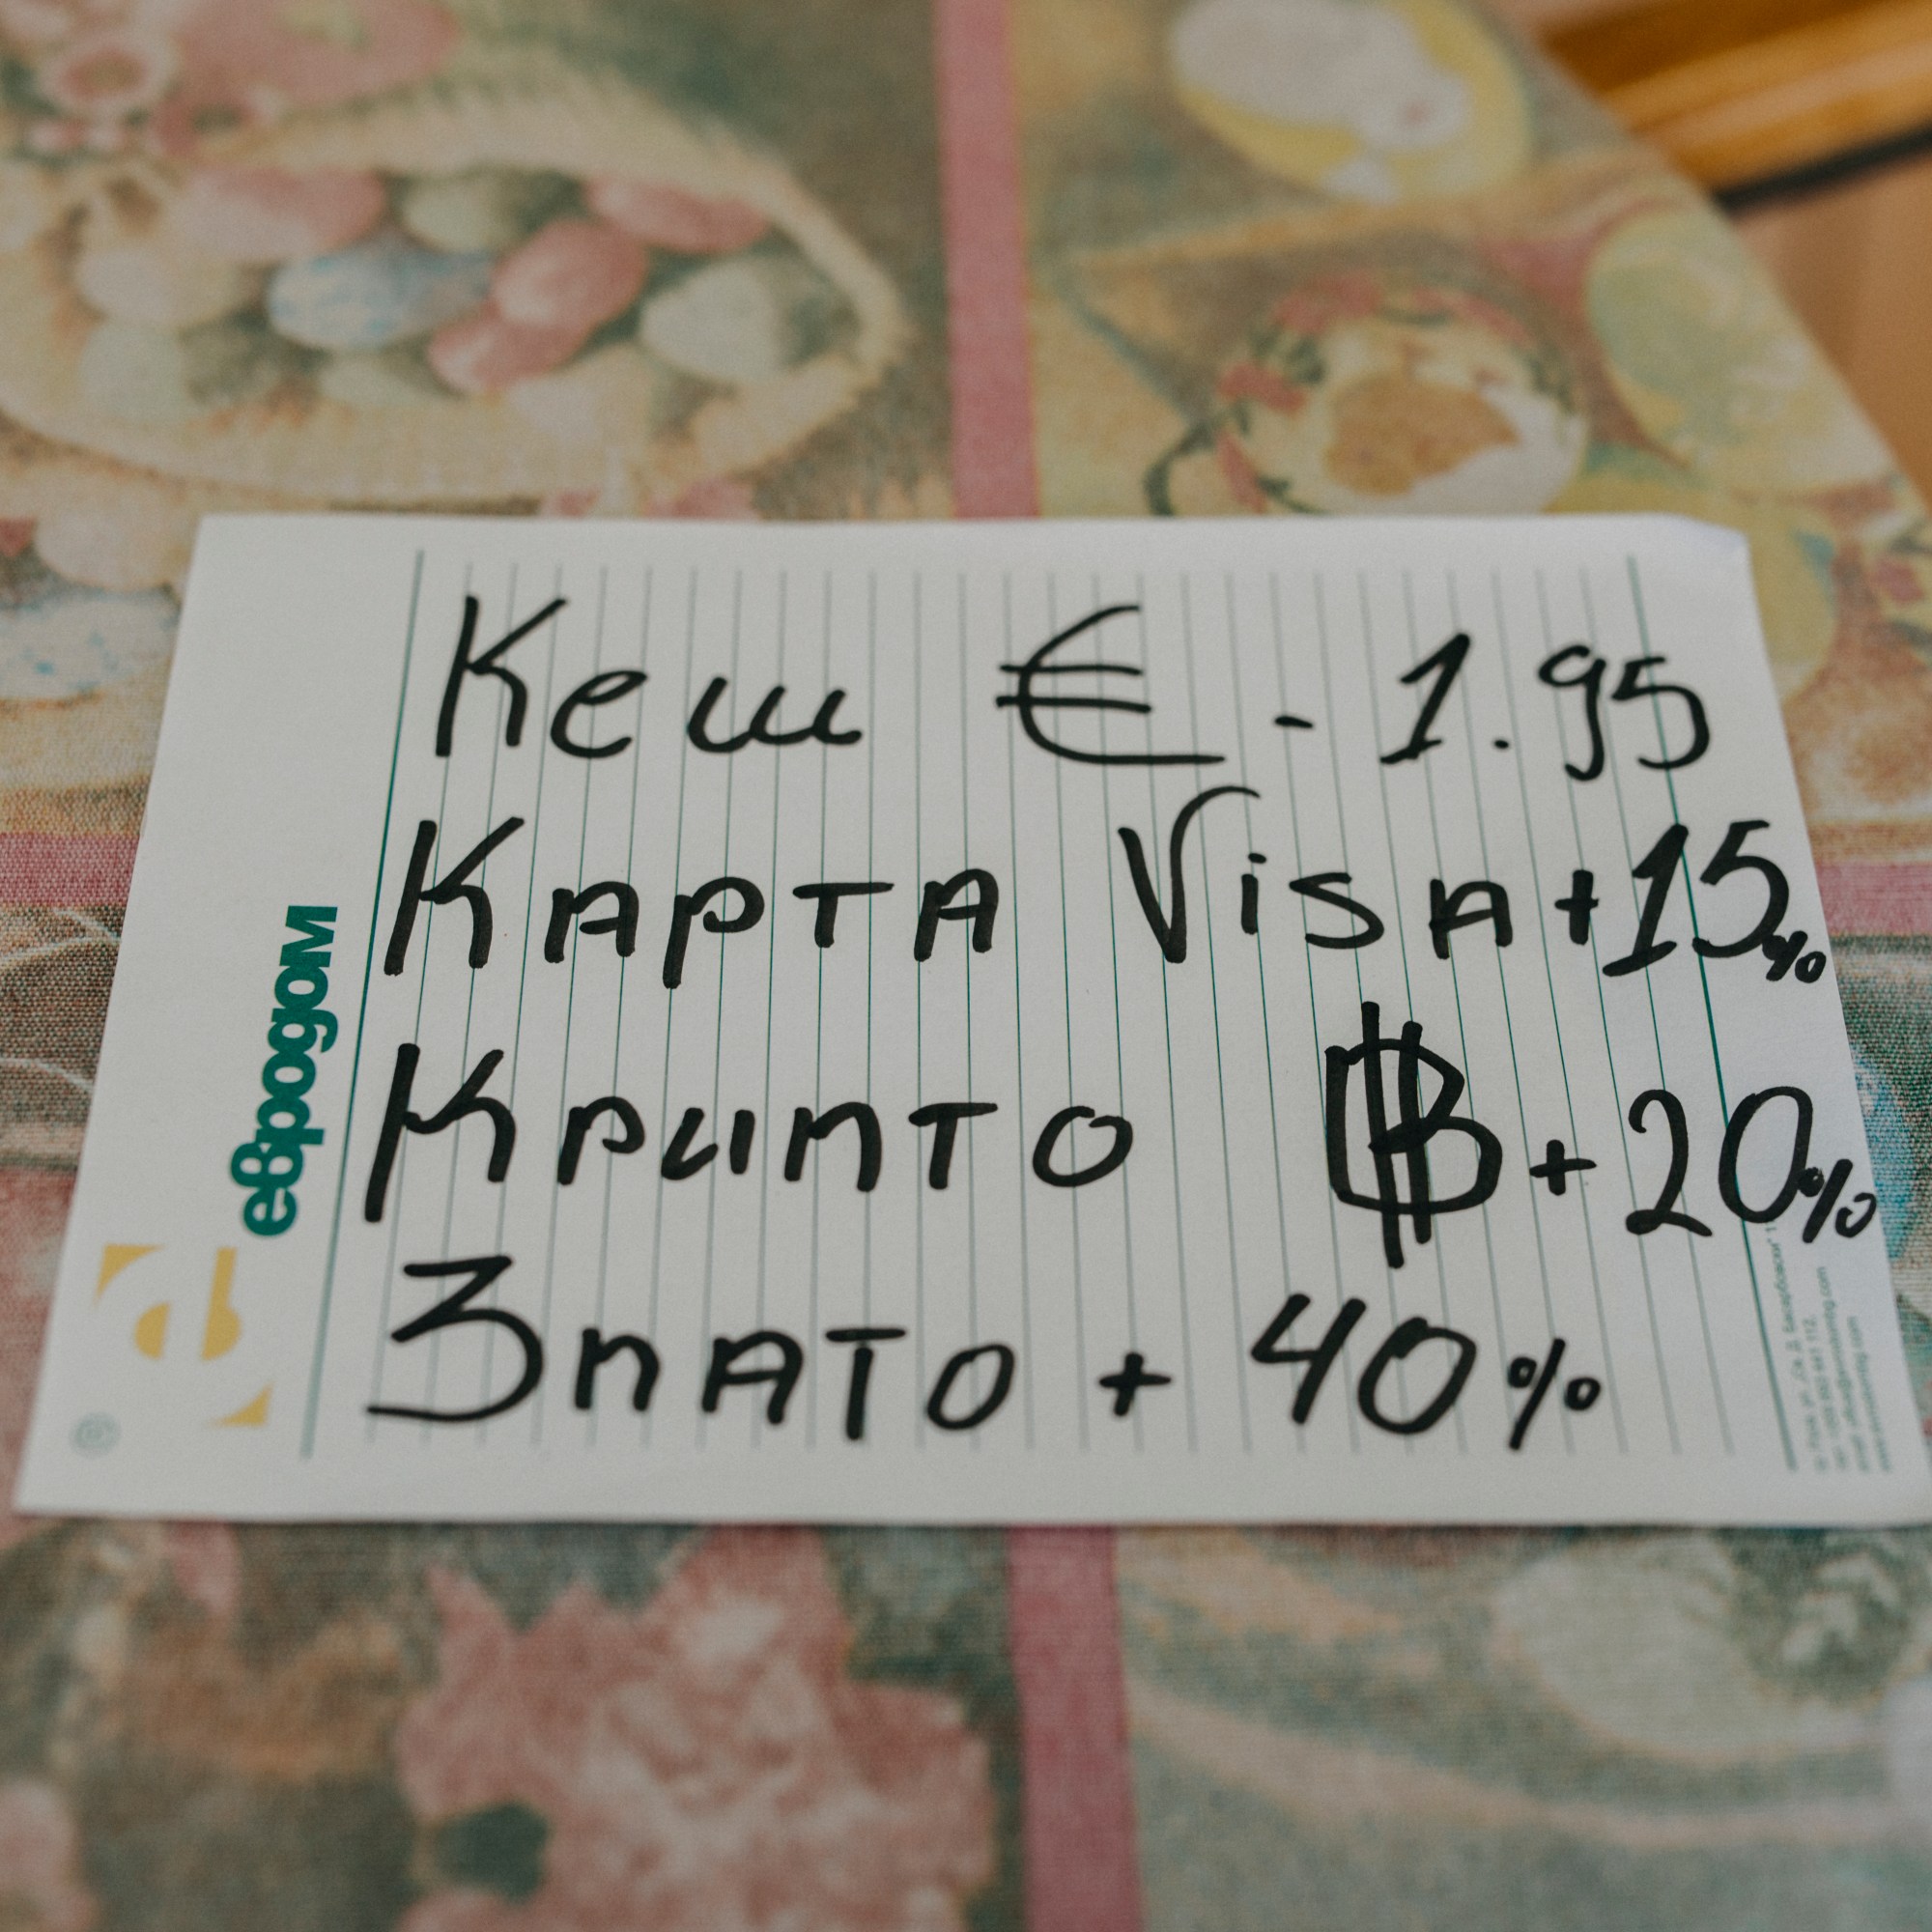 Кеш € - 1.95
Карта Visa +15%
Крипто ₿ + 20%
Злато + 40%
евродом